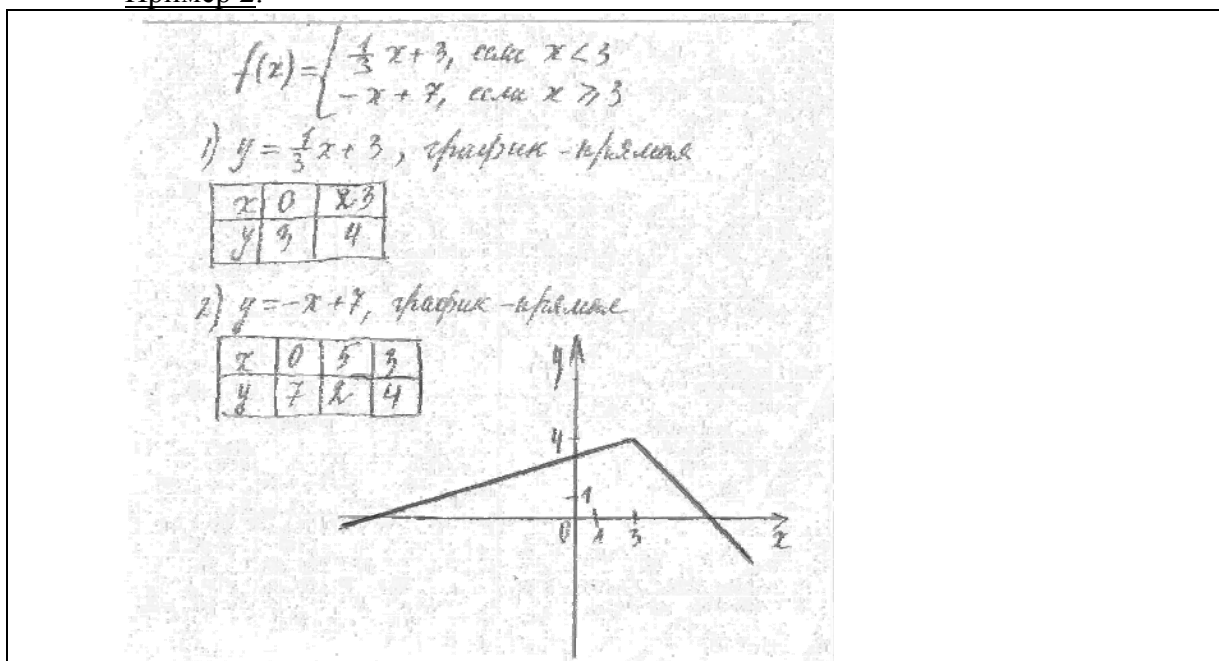 Пример 2.
f(x) = { 1/3 x + 3, если x < 3
- x + 7, если x ⩾ 3
1) y = 1/3 x + 3, график - прямая
x 0 23
y 3 4
2) y = -x + 7, график - прямая
x 0 5 3
y 7 2 4
y
4
1
0 1 3 x